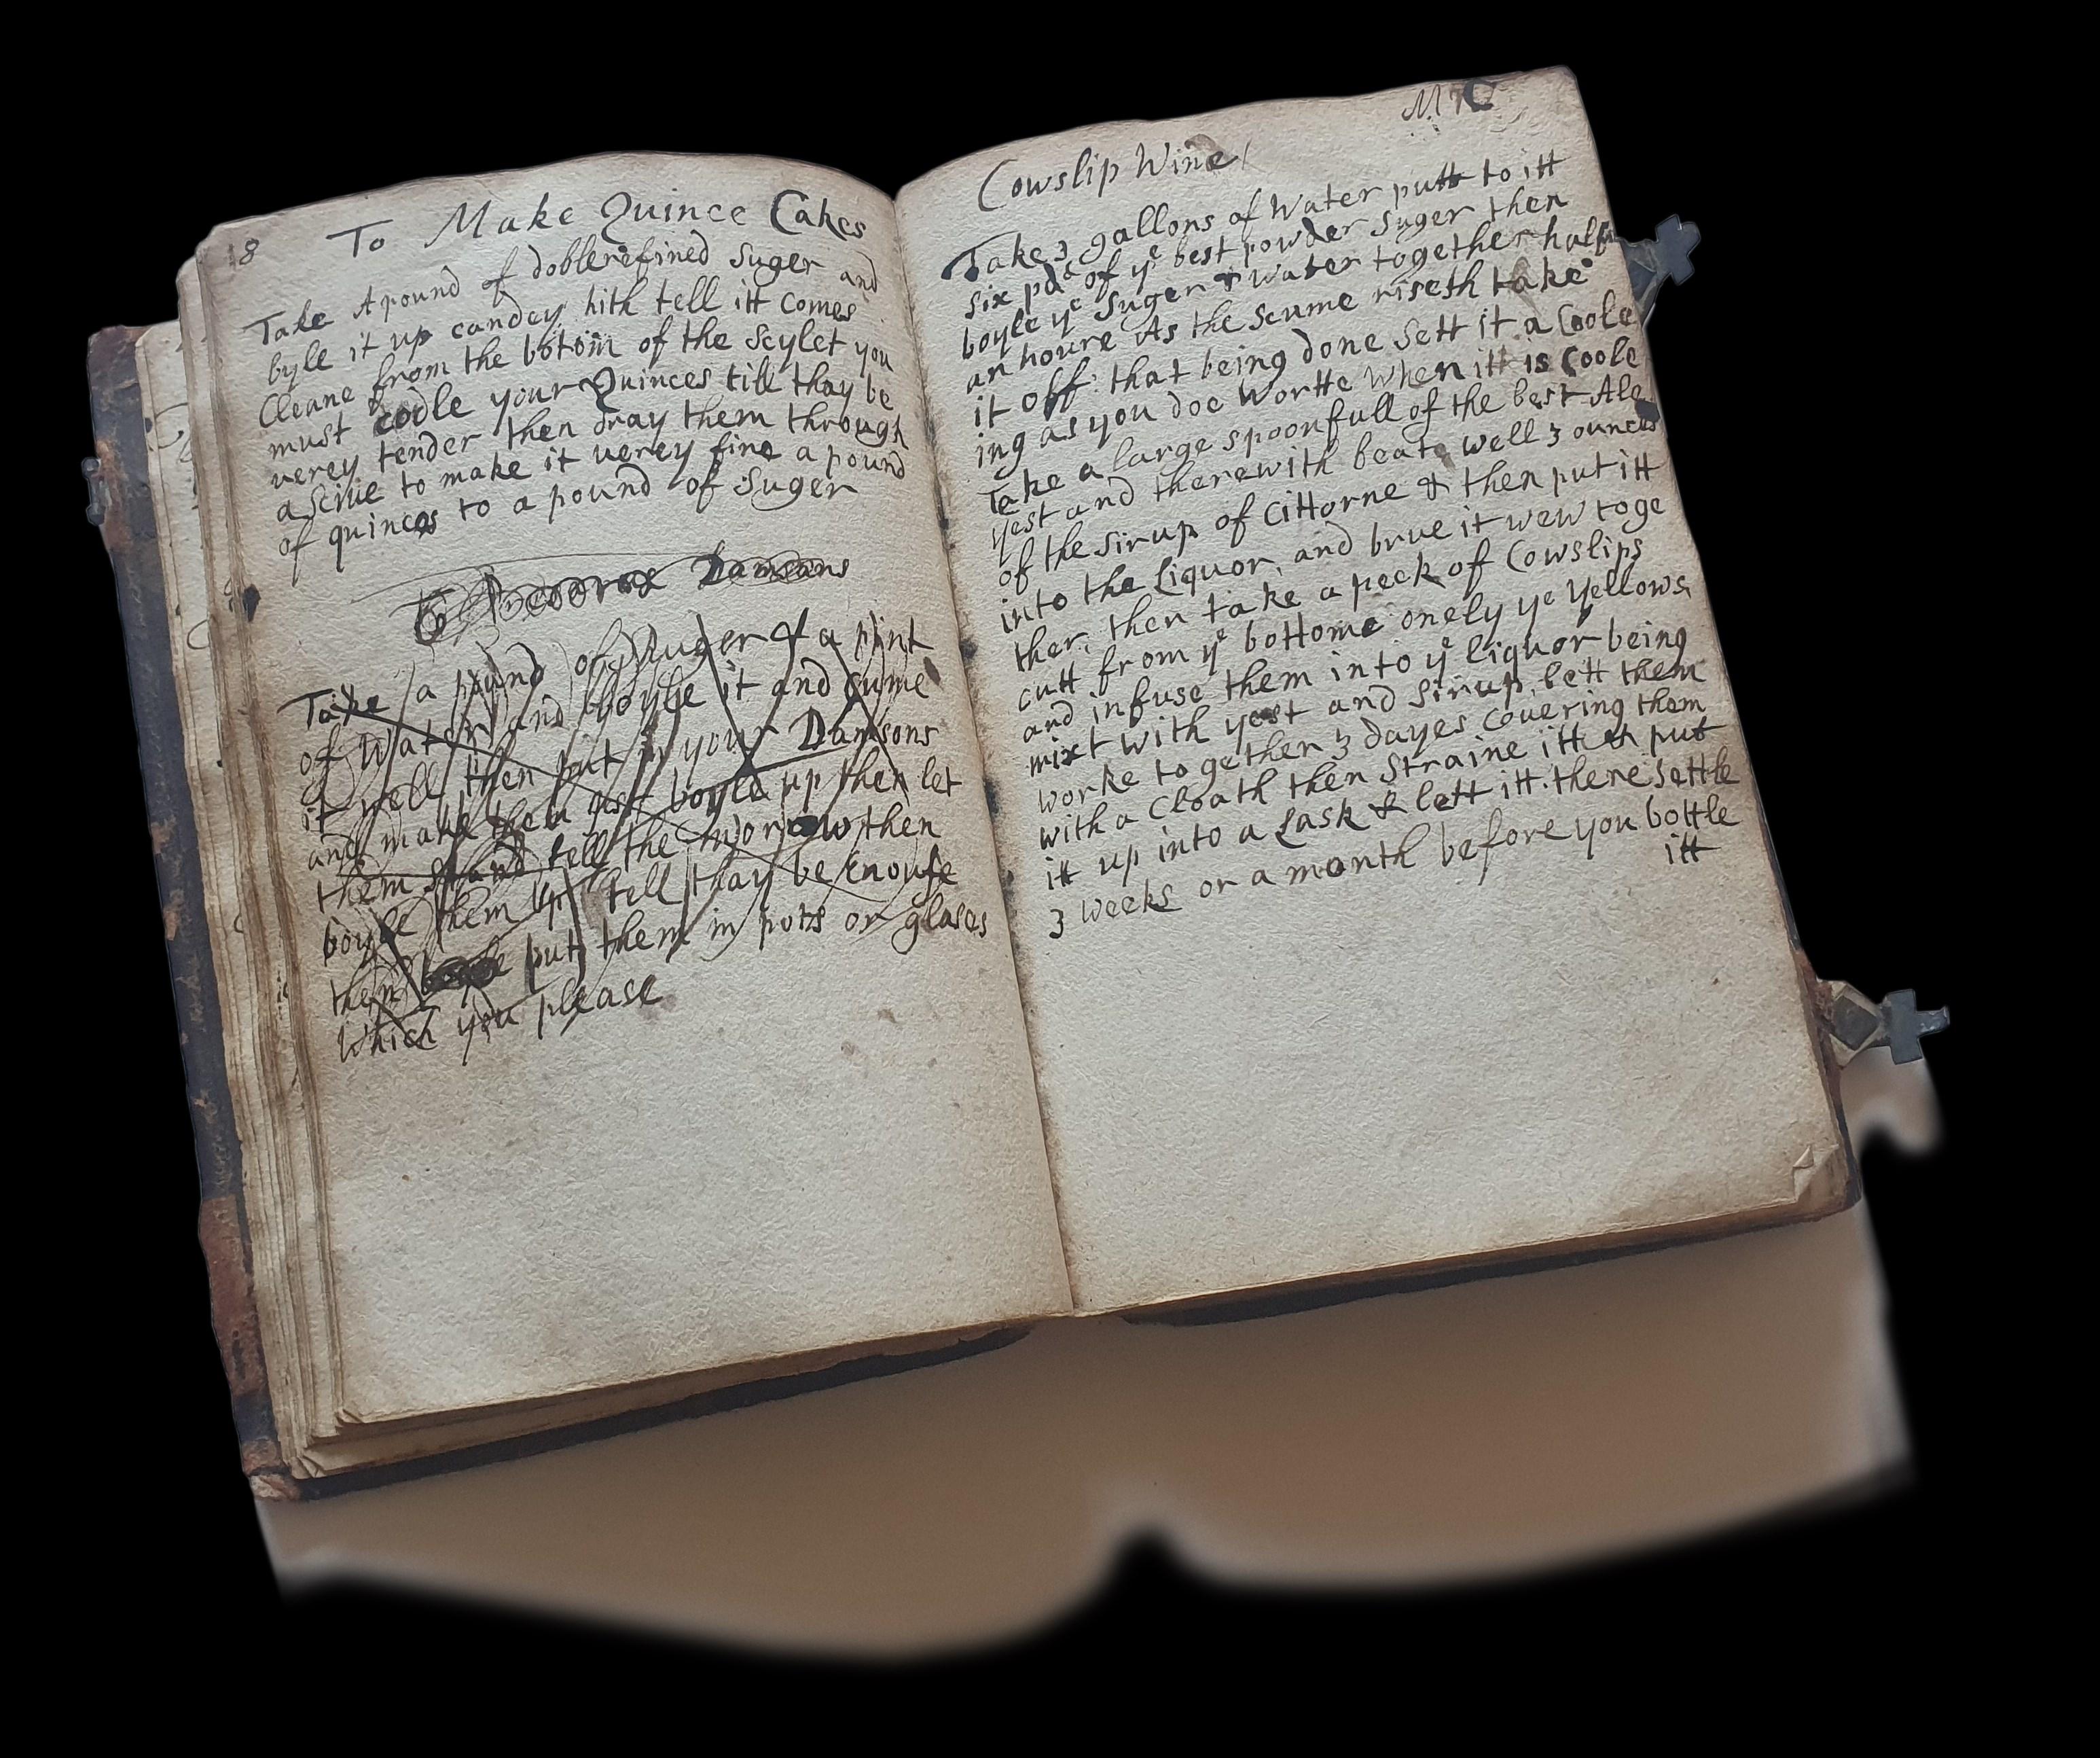 18
To Make Quince Cakes
Take A pound of doblerefined Suger and
byle it up candey hith tell itt comes
Cleane from the botom of the Scylet you
must codle your Quinces till thay be
verey tender then dray them through
a Scive to make it verey fine a pound
of quinces to a pound of Suger
To Damsons
Take a pound of Suger & a pint
of Water and boyle it and scume
it well then put in your Damsons
and make them Just boyle up then let
them stand tell the morrow then
boyle them up tell thay be Enoufe
then put them in pots or glases
Which you please
Cowslip Wine
Take 3 gallons of Water putt to itt
Six pds of ye best powder Suger then
boyle ye Suger & Water together half
an houre As the Scume riseth take
it off: that being done Sett it a Coole
ing as you doe Wortte When itt is Coole
Take a large spoonfull of the best Ale
yest and therewith beate well 3 ounces
of the Sirup of Cittorne & then put itt
into the Liquor, and brue it wew toge
ther, then take a peck of Cowslips
cutt from ye bottome onely ye yellows,
and infuse them into ye liquor being
mixt with yest and Sirup, lett them
worke together 3 dayes covering them
with a Cloath then Straine itt & put
itt up into a Cask & lett itt there settle
3 weeks or a month before you bottle
itt